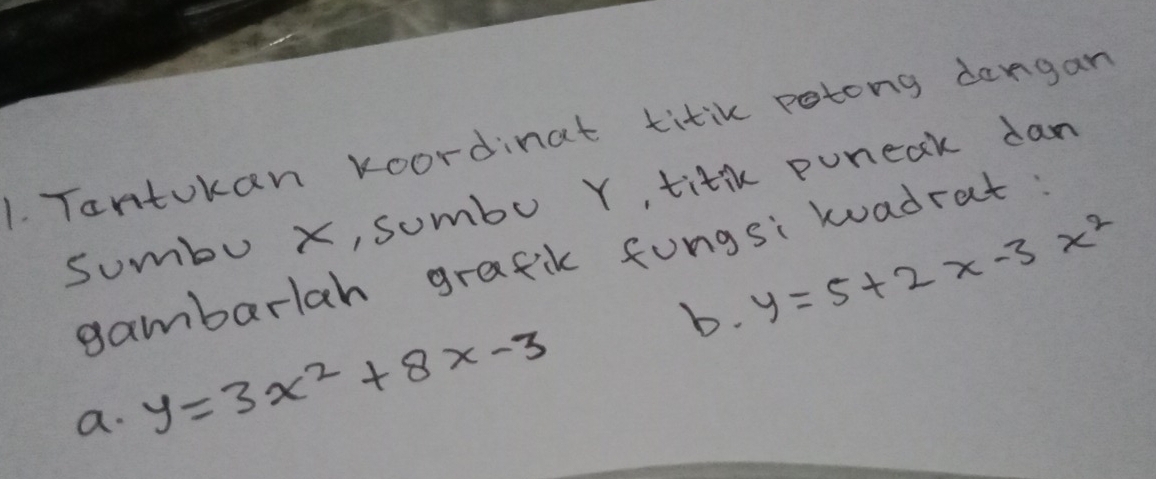 1. Tentukan koordinat titik potong dengan
sumbu X, sumbu Y, titik puncak dan
gambarlah grafik fungsi kuadrat :
a. y = 3x² + 8x - 3 b. y = 5 + 2x - 3x²